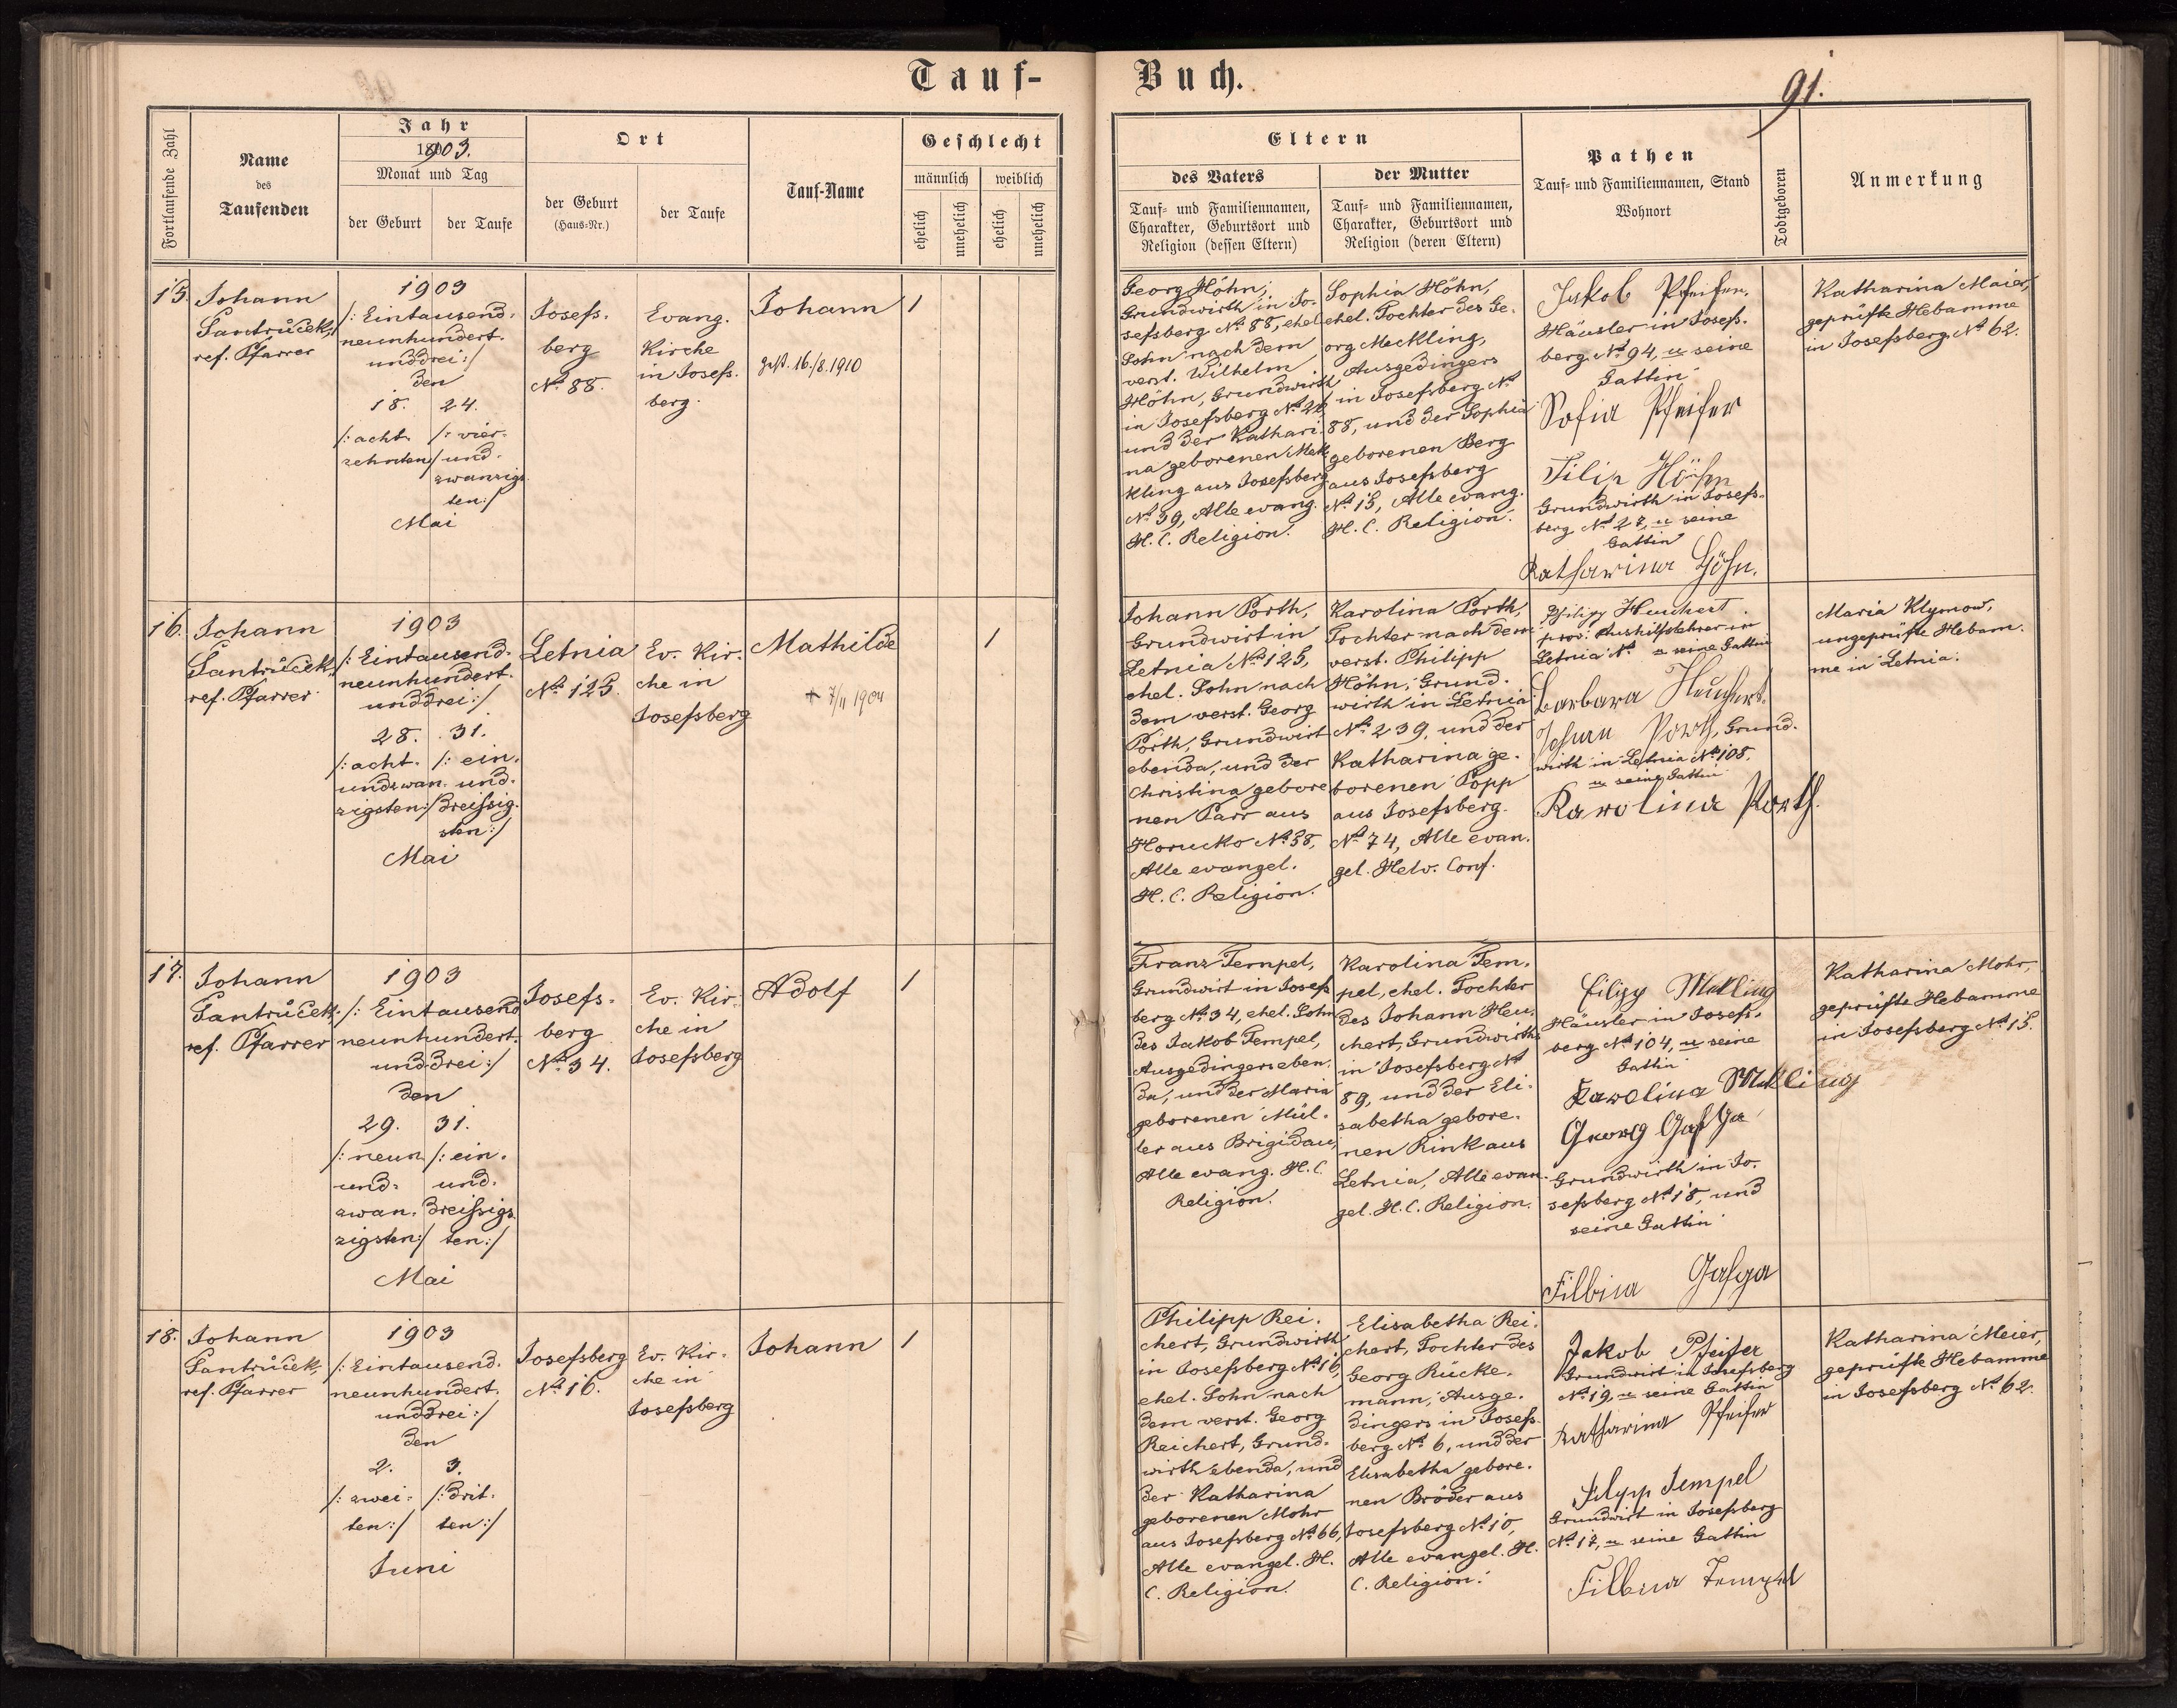 Tauf-
Buch.
91.
Fortlaufende Zahl
Name
des
Taufenden
Jahr
1903.
Monat und Tag
der Geburt
der Taufe
Ort
der Geburt
(Haus-Nr.)
der Taufe
Tauf-Name
Geschlecht
männlich
weiblich
ehelich
unehelich
ehelich
unehelich
Eltern
des Vaters
Tauf- und Familiennamen,
Charakter, Geburtsort und
Religion (dessen Eltern)
der Mutter
Tauf- und Familiennamen,
Charakter, Geburtsort und
Religion (deren Eltern)
Pathen
Tauf- und Familiennamen, Stand
Wohnort
Todtgeboren
Anmerkung
15.
Johann
Šantrůček,
ref. Pfarrer
1903
/: Eintausend-
neunhundert-
unddrei :/
den
18. 24.
/: acht- /: vier-
zehnten :/ und-
zwanzigs-
ten :/
Mai
Josefs-
berg
No 88.
Evang.
Kirche
in Josefs-
berg.
Johann
gest. 16./8.1910
1
Georg Höhn,
Grundwirth in Jo-
sefsberg No 88, ehel.
Sohn nach dem
verst. Wilhelm
Höhn, Grundwirth
in Josefsberg No 22,
und der Kathari-
na geborenen Mek-
kling aus Josefsberg
No 39, Alle evang.
H. C. Religion.
Sophia Höhn,
ehel. Tochter des Ge-
org Meckling,
Ausgedingers
in Josefsberg No
88, und der Sophia
geborenen Berg
aus Josefsberg
No 15, Alle evang.
H. C. Religion.
Jakob Pfeifer,
Häusler in Josefs-
berg No 94, u seine
Gattin
Sofia Pfeifer
Filip Höhn
Grundwirth in Josefs-
berg No 27, u seine
Gattin
Katharina Höhn.
Katharina Maier,
geprüfte Hebamme
in Josefsberg No 62.
16.
Johann
Šantrůček,
ref. Pfarrer
1903
/: Eintausend-
neunhundert-
unddrei :/
28. 31.
/: acht- /: ein-
undzwan- und-
zigsten :/ dreissig-
sten :/
Mai
Letnia
No 125.
Ev. Kir-
che in
Josefsberg
Mathilde
+ 7/11 1904
1
Johann Porth,
Grundwirt in
Letnia No 125,
ehel. Sohn nach
dem verst. Georg
Porth, Grundwirt
ebenda, und der
Christina gebore-
nen Parr aus
Horucko No 38,
Alle evangel.
H. C. Religion.
Karolina Porth,
Tochter nach dem
verst. Philipp
Höhn, Grund-
wirth in Letnia
No 239, und der
Katharina ge-
borenen Popp
aus Josefsberg
No 74, Alle evan-
gel. Helv. Conf.
Philipp Heuchert
prov. Aushilfslehrer in
Letnia No u seine Gattin
Barbara Heuchert.
Johann Porth, Grund-
wirth in Letnia No 108,
u seine Gattin
Karolina Porth.
Maria Klymow,
ungeprüfte Hebam-
me in Letnia.
17.
Johann
Šantrůček,
ref. Pfarrer
1903
/: Eintausend
neunhundert-
unddrei :/
den
29. 31.
/: neun /: ein-
und- und-
zwan- dreissigs-
zigsten :/ ten :/
Mai
Josefs-
berg
No 34.
Ev. Kir-
che in
Josefsberg
Adolf
1
Franz Tempel,
Grundwirt in Josefs
berg No 34, ehel. Sohn
des Jakob Tempel,
Ausgedingers eben-
da, und der Maria
geborenen Mül-
ler aus Brigidau,
Alle evang. H. C.
Religion.
Karolina Tem-
pel, ehel. Tochter
des Johann Heu-
chert, Grundwirths
in Josefsberg No
89, und der Eli-
sabetha gebore-
nen Rink aus
Letnia, Alle evan-
gel. H. C. Religion.
Filipp Mekling
Häusler in Josefs-
berg No 104, u seine
Gattin
Karolina Mekling
Georg
Grundwirth in Jo-
sefsberg No 18, und
seine Gattin
Filbina
Katharina Mohr,
geprüfte Hebamme
in Josefsberg No 15.
18.
Johann
Šantrůček,
ref. Pfarrer
1903
/: Eintausend-
neunhundert-
unddrei :/
den
2. 3.
/: zwei- /: drit-
ten :/ ten :/
Juni
Josefsberg
No 16.
Ev. Kir-
che in
Josefsberg
Johann
1
Philipp Rei-
chert, Grundwirth
in Josefsberg No 16,
ehel. Sohn nach
dem verst. Georg
Reichert, Grund-
wirth ebenda, und
der Katharina
geborenen Mohr
aus Josefsberg No 66,
Alle evangel. H.
C. Religion.
Elisabetha Rei-
chert, Tochter des
Georg Rücke-
mann, Ausge-
dingers in Josefs-
berg No 6, und der
Elisabetha gebore-
nen Bröder aus
Josefsberg No 10,
Alle evangel. H.
C. Religion.
Jakob Pfeifer
Grundwirt in Josefsberg
No 19, u seine Gattin
Katharina Pfeifer
Filipp Tempel
Grundwirt in Josefsberg
No 17, u seine Gattin
Filbina Tempel
Katharina Meier,
geprüfte Hebamme
in Josefsberg No 62.